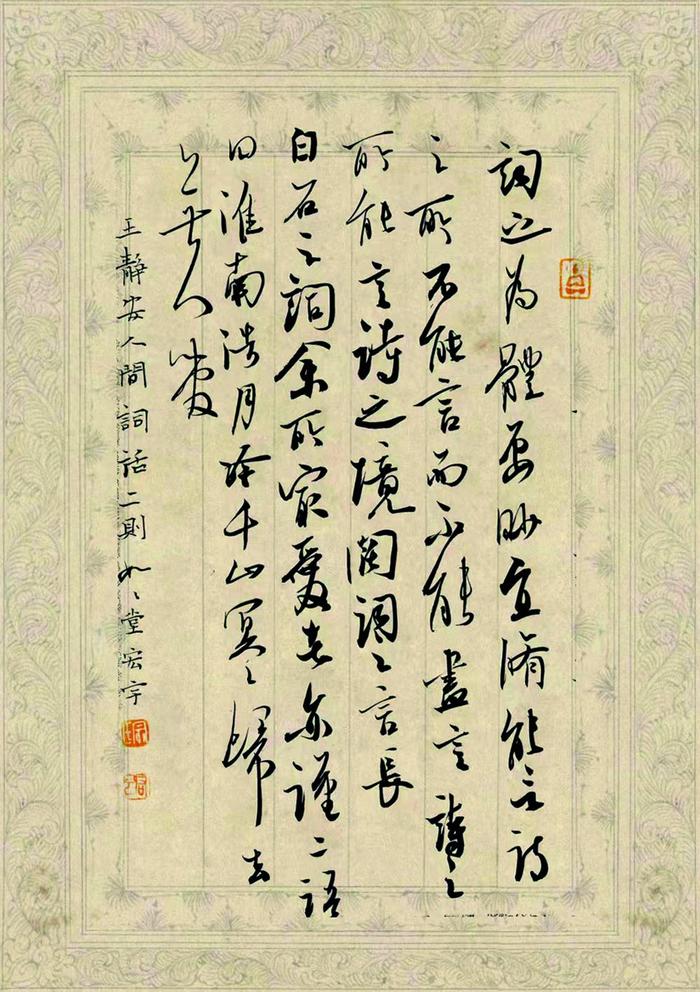 詞之為體要眇宜脩能言詩
之所不能言而不能盡言詩之
所能言詩之境闊詞之言長
白石之詞余所最愛者亦謹二語
曰淮南浩月冷千山冥〻歸去
無人管
王靜安人間詞話二則如〻堂宏宇